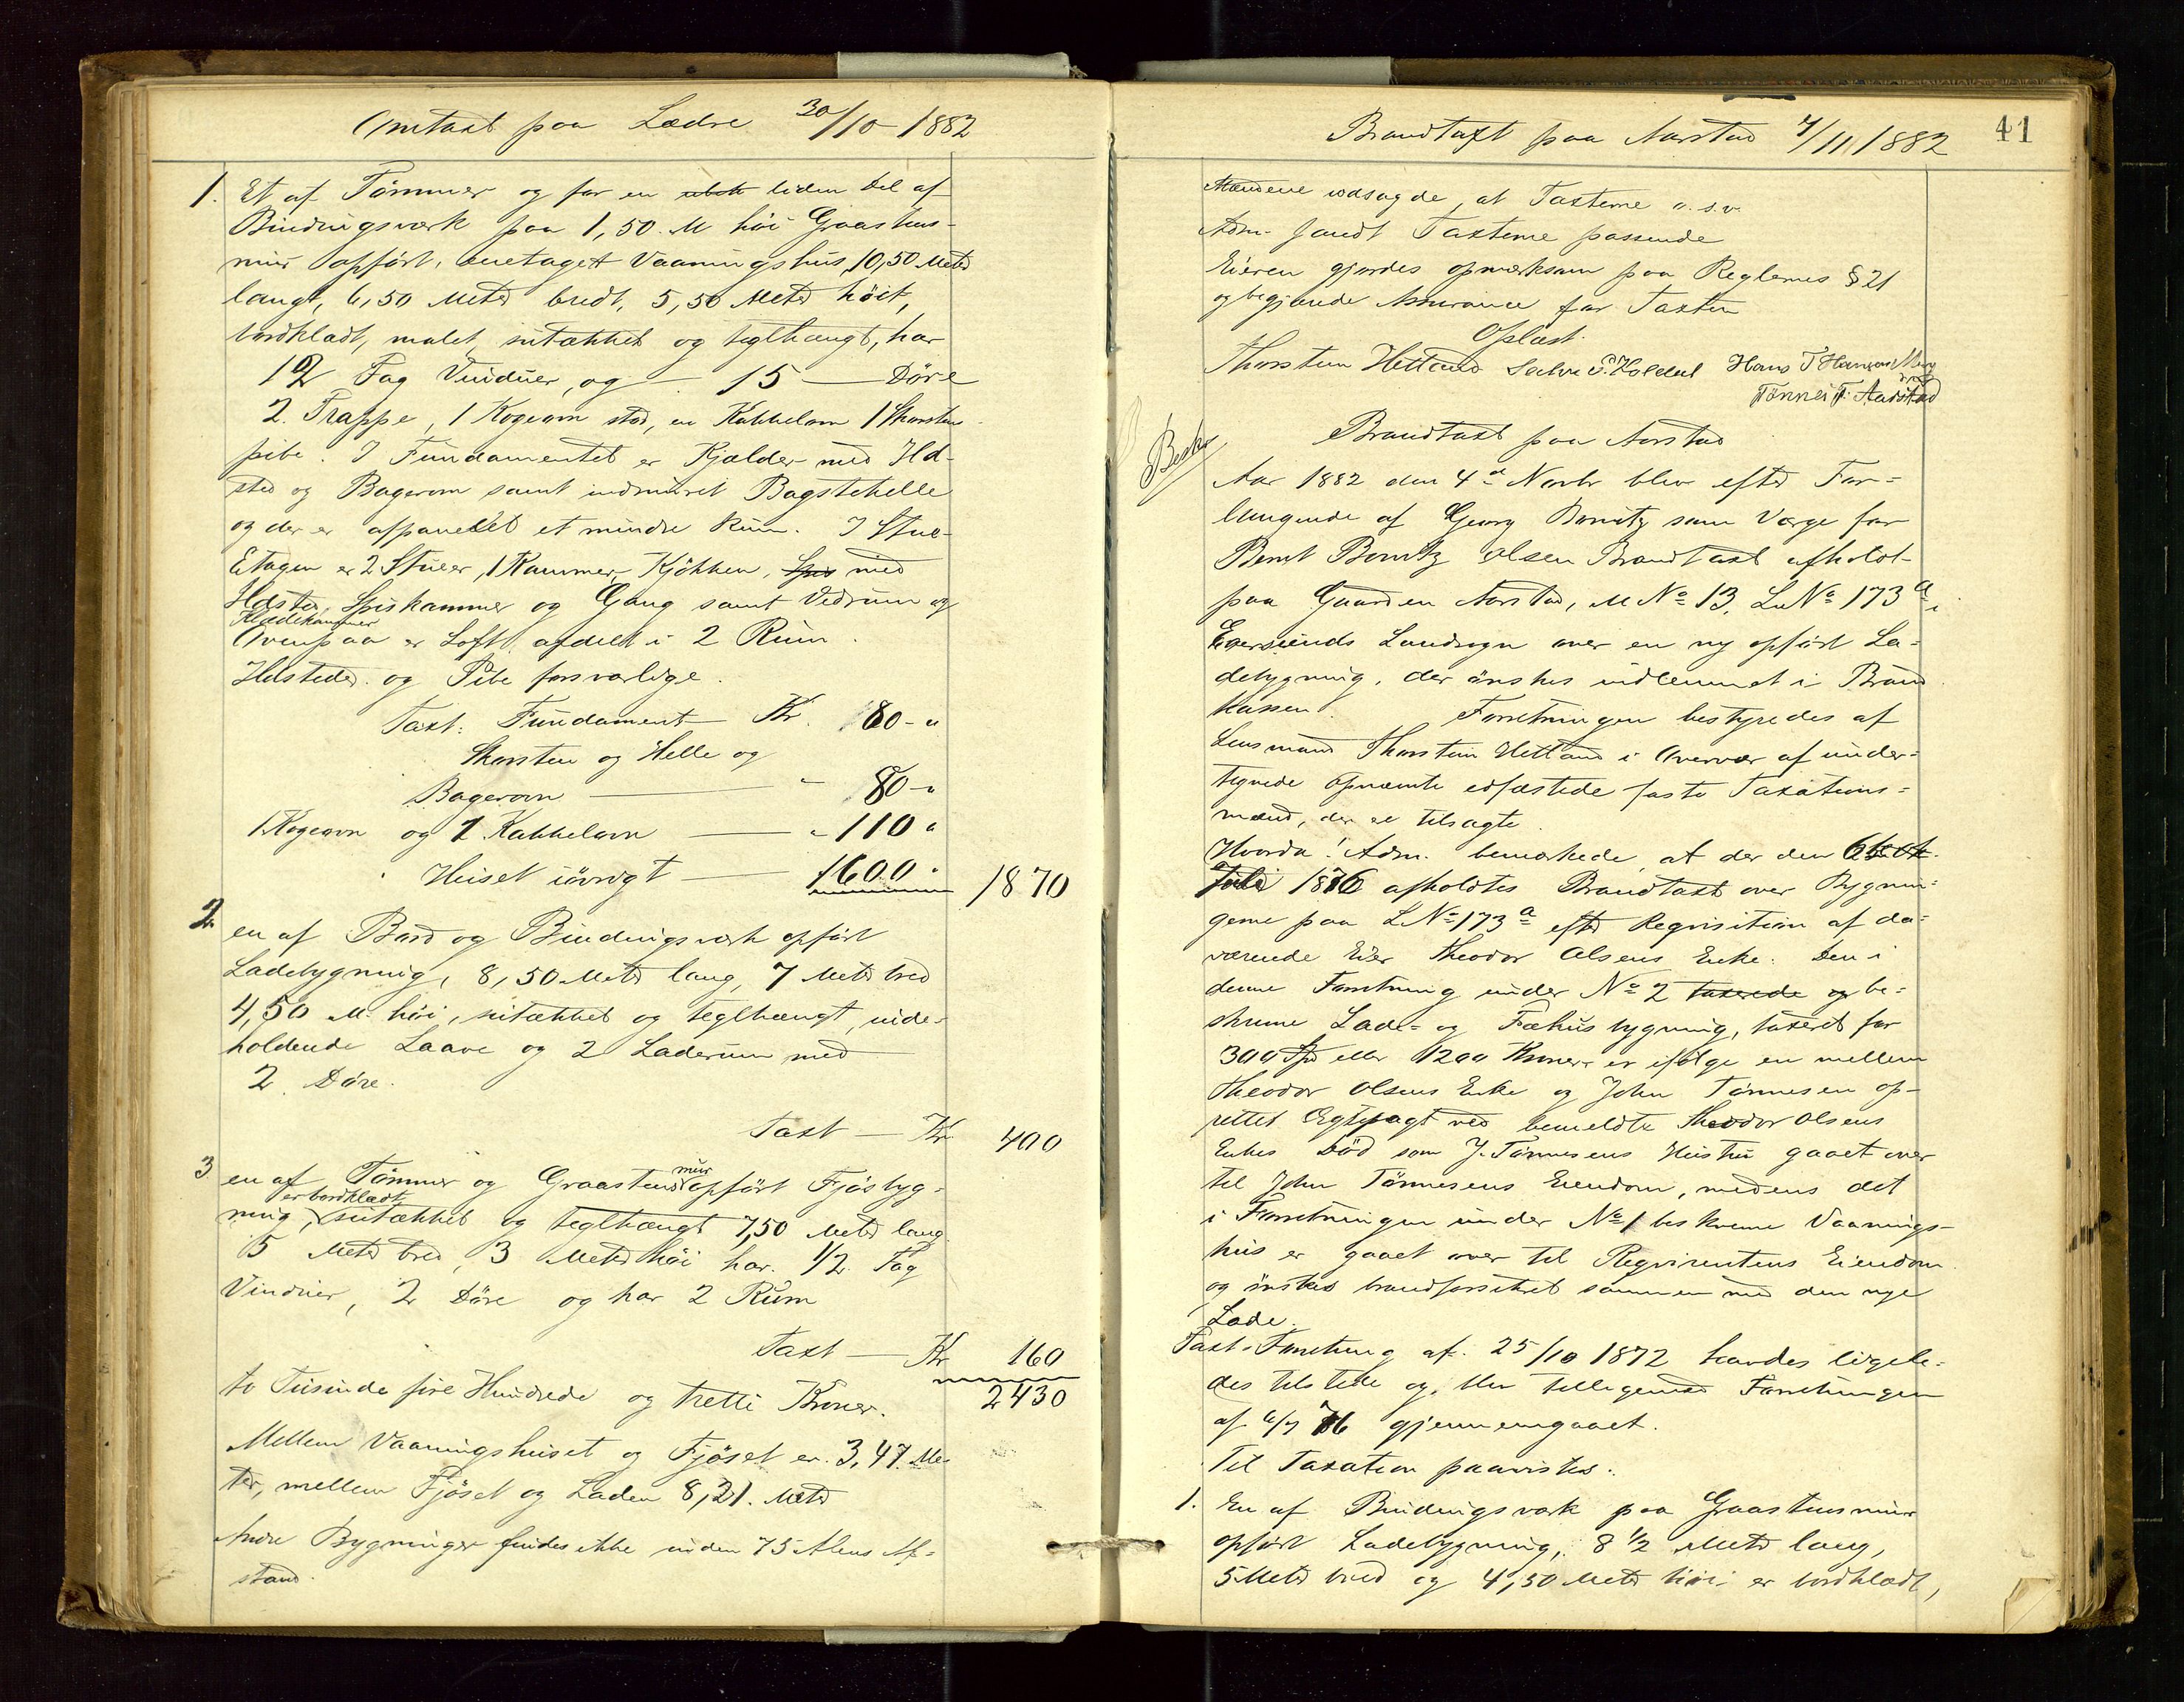 Omtaxt paa Lædre 30/10 1882
1. Et af Tömmer og for en liden Del af
Bindingsværk paa 1,50 M höi Graastens-
mur opfört, enetaget Vaaningshus, 10,50 Meter
langt, 6,50 Meter bredt, 5,50 Meter höit,
bordklædt, malet, sutækket og teglhængt, har
12 Fag Vinduer, og — 15 — Döre
2 Trappe, 1 Kogeovn stor, en Kakkelovn 1 Skorsten
pibe. I Fundamentet er Kjælder med Ild-
sted og Bagerovn samt indmuret Bagstehelle
og der er afpanelet et mindre Rum. I Stue-
Etagen er 2 Stuer, 1 Kammer, Kjökken, med
Ildsted, Spiskammer og Gang samt Vedrum og
Klædekammer
Ovenpaa er Loft, afdelt i 2 Rum.
Ildsteder og Pibe forsvarlige.
Taxt: Fundament Kr. 80 - "
Skorsten og Helle og
Bagerovn — " 80 - "
1 Kogeovn og 1 Kakkelovn — " 110 "
Huset iövrigt — 1600 " 1870
2 en af Bord og Bindingsværk opfört
Ladebygning, 8,50 Meter lang, 7 Meter bred
4,50 M. höi, sutækket og teglhængt, inde-
holdende Laave og 2 Laderum med
2 Döre.
Taxt — Kr. 400
3 en af Tömmer og Graastens mur opfört Fjösbyg-
er bordklædt,
ning, sutækket og teglhængt 7,50 Meter lang
5 Meter bred, 3 Meter höi har 1/2 Fag
Vinduer, 2 Döre og har 2 Rum
Taxt — Kr 160
to Tusinde fire Hundrede og tretti Kroner. 2430
Mellem Vaaningshuset og Fjöset er 3,47 Me-
ter, mellem Fjöset og Laden 8,21. Meter
Andre Bygninger findes ikke inden 75 Alens Af-
stand.
Brandtaxt paa Aarstad 4/11 1882
41
Mændene udsagde, at Taxterne o.s.v.
Adm. fandt Taxterne passende
Eieren gjordes opmærksom paa Reglernes § 21
og begjærede Assurance for Taxten
Oplæst.
Thorsten Hetland Hans T Hansen
Tönnes T. Aarstad
Brandtaxt paa Aarstad
Aar 1882 den 4de Novbr blev efter For-
langende af Georg Bomitz som Værge for
Bernt Bomitz Olsen Brandtaxt afholdt
paa Gaarden Aarstad, M No 13, L No 173 a i
Egersunds Landsogn over en ny opfört La-
debygning, der önskes indlemmet i Brand
kassen. Forretningen bestyredes af
Lensmand Thorsten Hetland i Overvær af under-
tegnede opnævnte edfæstede faste Taxations-
mænd, der er tilsagte.
Hvorda! Adm. bemærkede, at der den 6te
Juli 1876 afholdtes Brandtaxt over Bygnin-
gerne paa L No 173 a efter Reqvisition af da-
værende Eier Theodor Olsens Enke. Den i
denne Forretning under No 2 taxerede og be-
skrevne Lade- og Fæhusbygning, taxeret for
300 Spd eller 1200 Kroner er ifölge en mellem
Theodor Olsens Enke og John Tönnesen op-
rettet Ægtepagt ved bemeldte Theodor Olsens
Enkes Död som J. Tönnesens Hustru gaaet over
til John Tönnesens Eiendom, medens det
i Forretningen under No 1 beskrevne Vaanings-
hus er gaaet over til Reqvirentens Eiendom
og önskes brandforsikret sammen med den nye
Lade.
Taxt-Forretning af 25/10 1872 havdes ligele-
des tilstede og blev tilligemed Forretningen
af 6/7 76 gjennemgaaet.
Til Taxation paavistes:
1. En af Bindingsværk paa Graastensmur
opfört Ladebygning, 8 1/2 Meter lang,
5 Meter bred og 4,50 Meter höi er bordklædt,